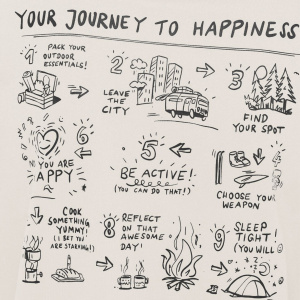 YOUR JOURNEY TO HAPPINESS
1
PACK YOUR
OUTDOOR
ESSENTIALS!
2
LEAVE
THE
CITY
3
FIND
YOUR SPOT
6
YOU ARE
APPY
5
BE ACTIVE!
(YOU CAN DO THAT!)
CHOOSE YOUR
WEAPON
COOK
SOMETHING
YUMMY!
(I BET YOU
ARE STARVING!)
8
REFLECT
ON THAT
AWESOME
DAY!
9
SLEEP
TIGHT!
(YOU WILL